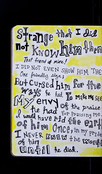 Strange that I did
not know him then
That friend of mine!
I DID NOT EVEN SHOW HIM THEN
One friendly sign;
But cursed him for the
ways he had
To make me see
My envy of the praise
he had
For praising me
I would have rid the earth
of him
Once, in my pride
I NEVER KNEW the worth
of him
Until he died.